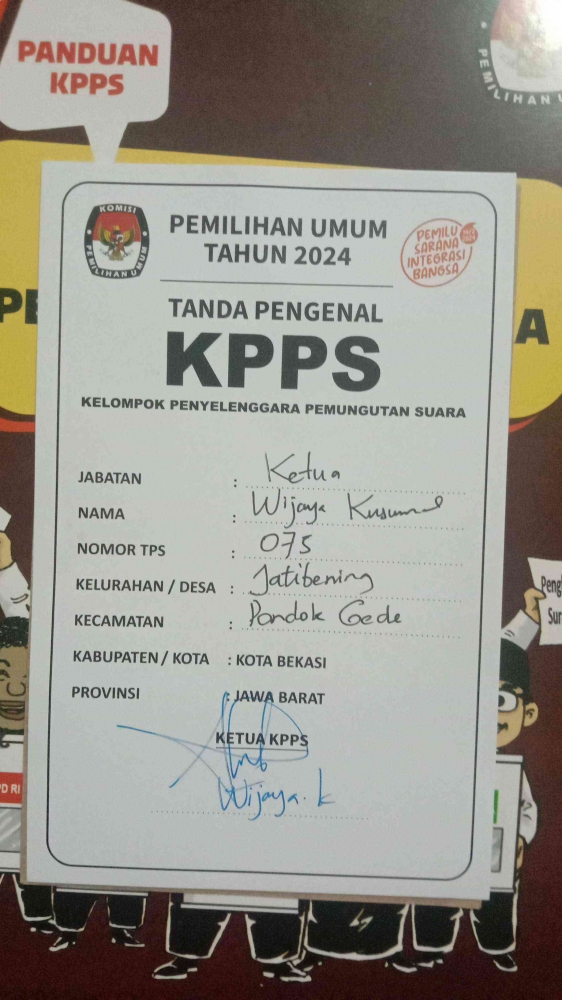 PANDUAN
KPPS
PEMILIHAN U
KOMISI
PEMILIHAN UMUM
PEMILIHAN UMUM
TAHUN 2024
PEMILU
SARANA
INTEGRASI
BANGSA
TANDA PENGENAL
KPPS
KELOMPOK PENYELENGGARA PEMUNGUTAN SUARA
PE
A
JABATAN : Ketua
NAMA : Wijaya Kusuma
NOMOR TPS : 075
KELURAHAN / DESA : Jatibening
KECAMATAN : Pondok Gede
KABUPATEN / KOTA : KOTA BEKASI
PROVINSI : JAWA BARAT
KETUA KPPS
Wijaya.k
Peng
Sur
PD RI